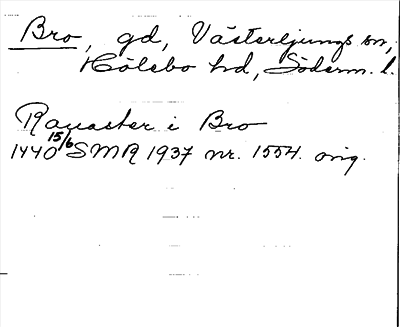 Bro, gd, Västerljungs sn,
Hölebo hd, Söderm. l.
Ravaster i Bro
1440 15/6 SMR 1937 nr. 1554. orig.